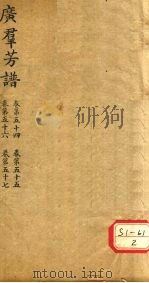 廣羣芳譜
卷第五十四
卷第五十五
卷第五十六
卷第五十七
S1-61
2
www.docin.com